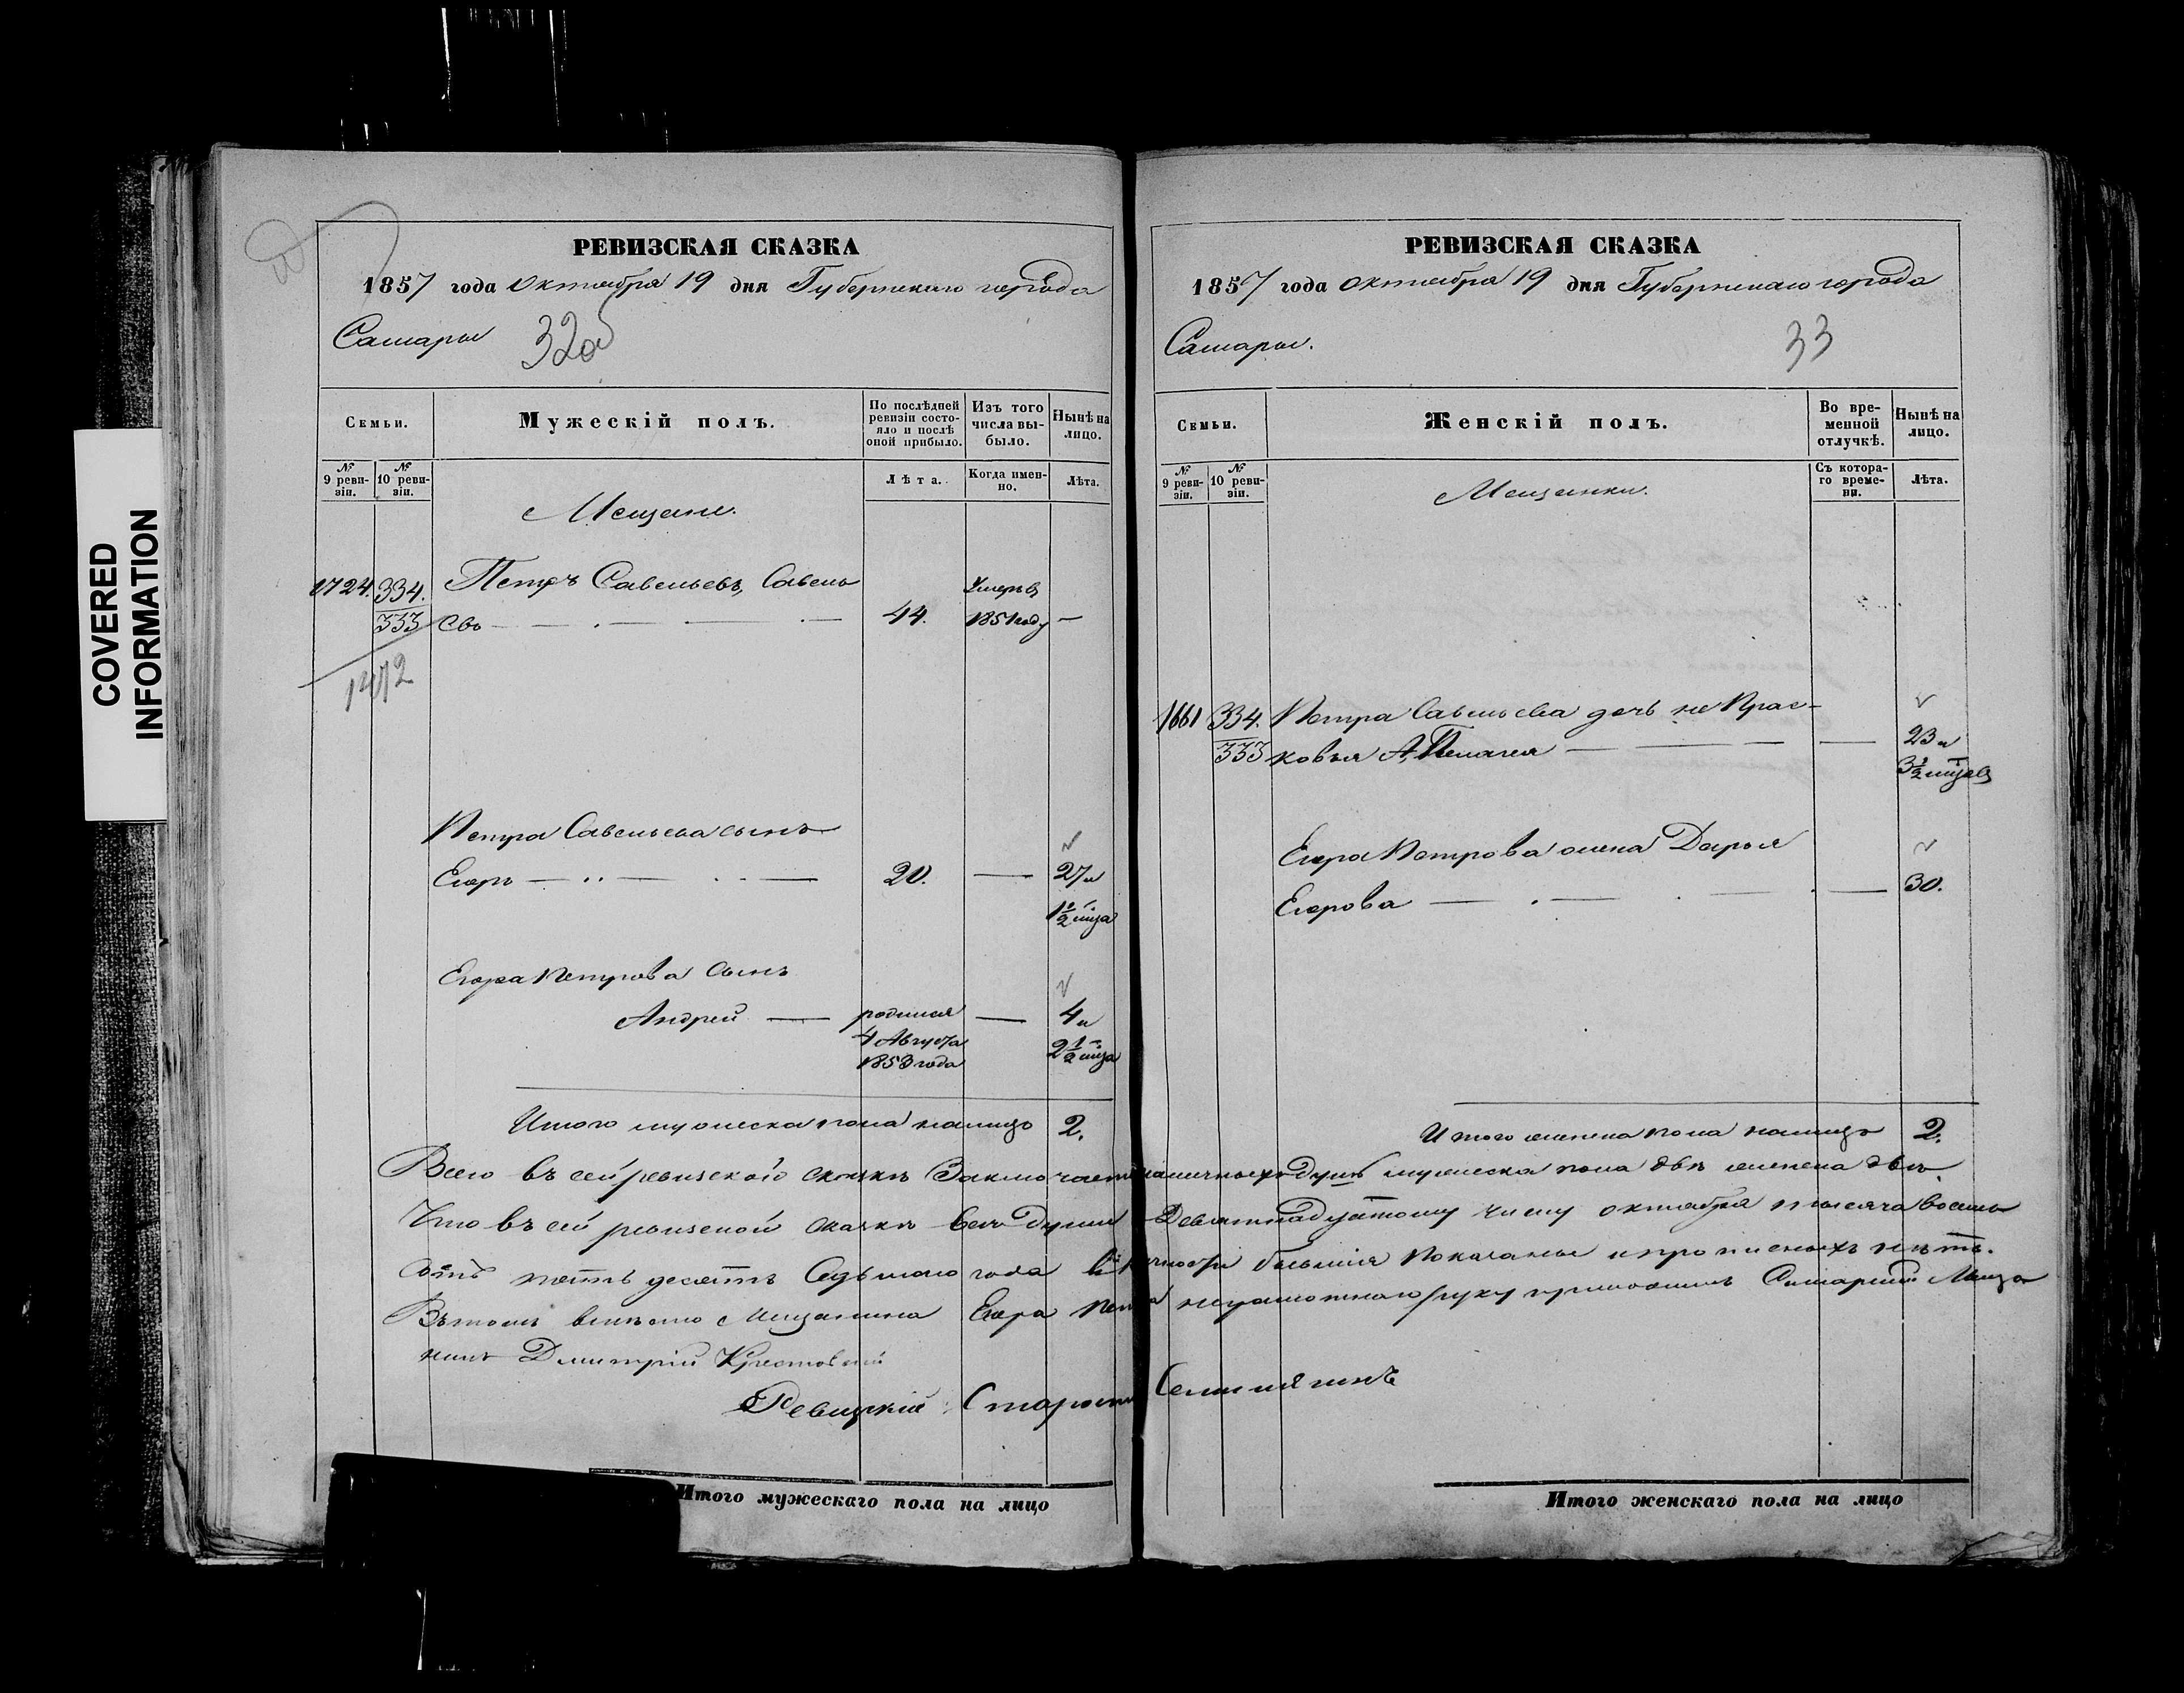 COVERED
INFORMATION
РЕВИЗСКАЯ СКАЗКА
1857 года Октября 19 дня Губернскаго города
Самары 32об
Семьи.
Мужескій полъ.
По послѣдней ревизіи состояло и послѣ оной прибыло.
Изъ того числа выбыло.
Нынѣ на лицо.
№ 9 ревизіи.
№ 10 ревизіи.
Лѣта.
Когда именно.
Лѣта.
Мещане.
1724. 334. Петръ Савельевъ, Савель Умеръ въ
333 евъ 44. 1851 году —
1472
Петра Савельева сынъ
Егоръ — 20. — 27 и
1 1/2 м-ца
Егора Петрова сынъ
Андрей — родился — 4 и
4 Августа 2 1/2 м-ца
1853 года
Итого мужеска пола налицо 2.
Итого мужескаго пола на лицо
РЕВИЗСКАЯ СКАЗКА
1857 года октября 19 дня Губернскаго города
Самары. 33
Семьи.
Женскій полъ.
Во временной отлучкѣ.
Нынѣ на лицо.
№ 9 ревизіи.
№ 10 ревизіи.
Съ котораго времени.
Лѣта.
Мещанки.
1661 334. Петра Савельева дочь не Прас-
333 ковья А, Пелагея — 23 и
3 1/2 м-цевъ
Егора Петрова жена Дарья
Егорова — 30.
Итого женска пола налицо 2.
Всего въ сей ревизской сказкѣ Заключается наличныхъ душъ мужеска пола двѣ женска двѣ
Что въ сей ревизской сказкѣ всѣ души Девятнадцатому числу октября тысяча восемь
сотъ пятьдесятъ Седьмаго года бывшія Показаны и прописныхъ нѣтъ.
Въ томъ вмѣсто Мещанина Егора неграмотнаго руку приложилъ Самарскій Меща
нинъ Дмитрій
Ревизкій Староста
Итого женскаго пола на лицо